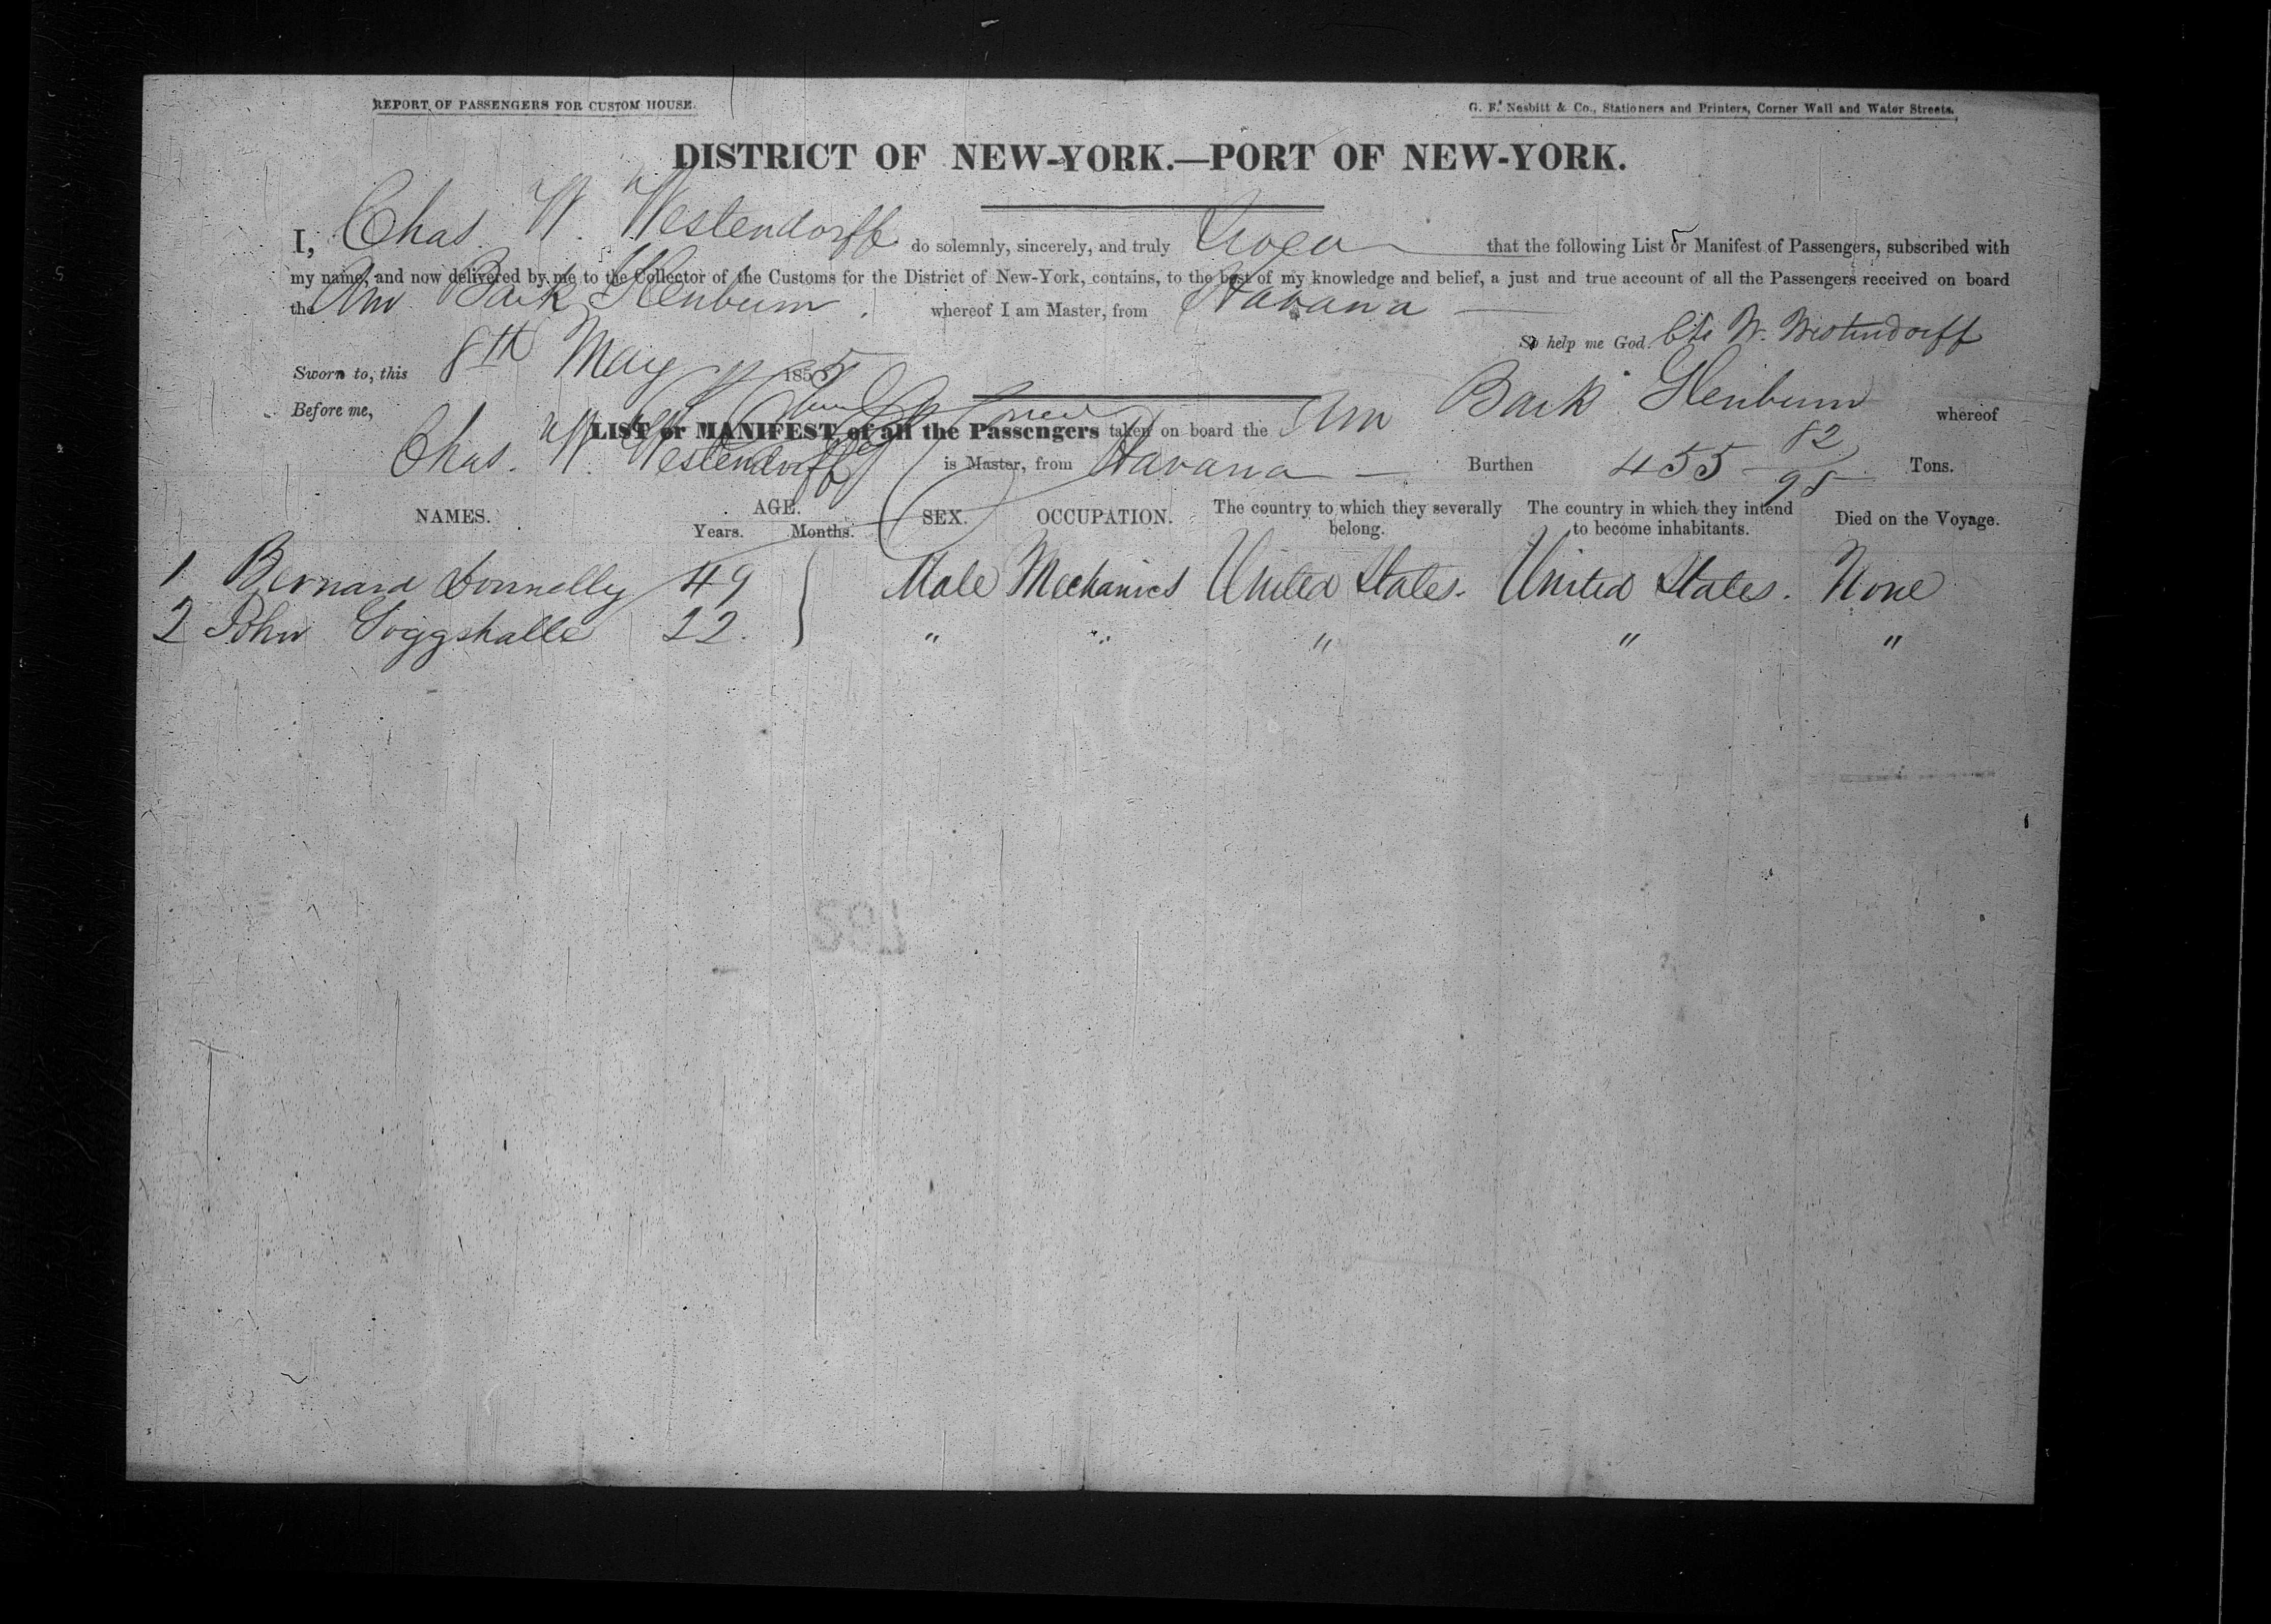 REPORT OF PASSENGERS FOR CUSTOM HOUSE.
G. F. Nesbitt & Co., Stationers and Printers, Corner Wall and Water Streets.
DISTRICT OF NEW-YORK.—PORT OF NEW-YORK.
I, Chas. W. Westendorff do solemnly, sincerely, and truly Swear that the following List or Manifest of Passengers, subscribed with
my name, and now delivered by me to the Collector of the Customs for the District of New-York, contains, to the best of my knowledge and belief, a just and true account of all the Passengers received on board
the Am Bark Glenburn. whereof I am Master, from Havana
So help me God. Chs W. Westendorff
Sworn to, this 8th May 1855
Before me,
LIST or MANIFEST of all the Passengers taken on board the Am Bark Glenburn whereof
Chas. W. Westendorff is Master, from Havana Burthen 455 82/95 Tons.
NAMES. AGE. SEX. OCCUPATION. The country to which they severally belong. The country in which they intend to become inhabitants. Died on the Voyage.
Years. Months.
1 Bernard Donnelly 49 Male Mechanics United States. United States. None
2 John 22. " " " " "